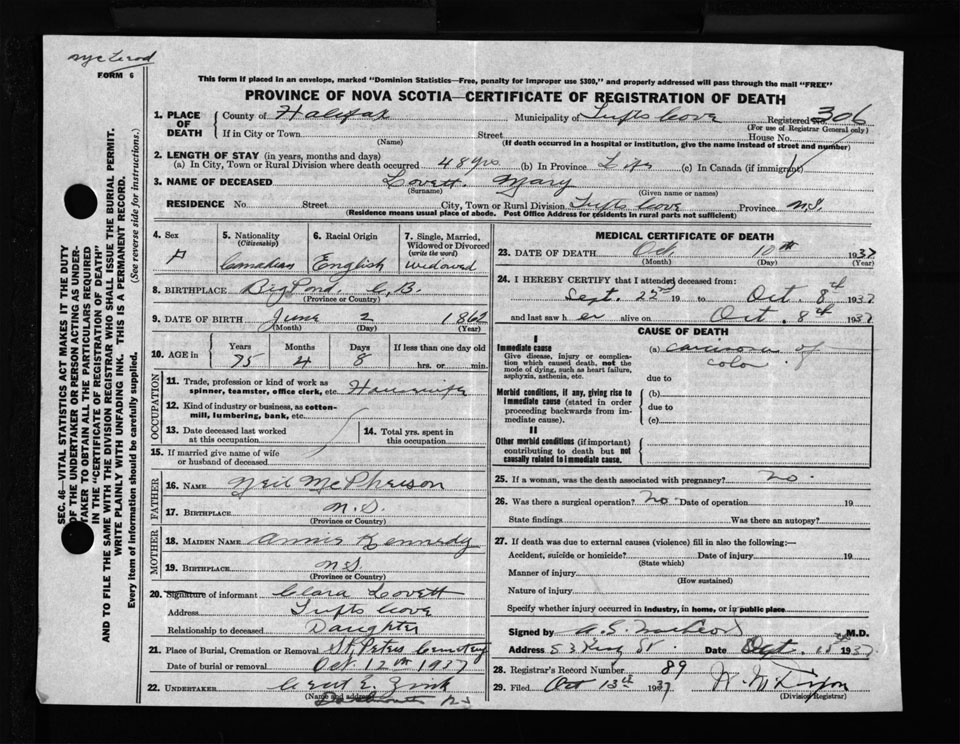 FORM 6
This form if placed in an envelope, marked "Dominion Statistics—Free, penalty for improper use $300," and properly addressed will pass through the mail "FREE"
PROVINCE OF NOVA SCOTIA—CERTIFICATE OF REGISTRATION OF DEATH
SEC. 46—VITAL STATISTICS ACT MAKES IT THE DUTY
OF THE UNDERTAKER OR PERSON ACTING AS UNDER-
TAKER TO OBTAIN ALL THE PARTICULARS REQUIRED
IN THE "CERTIFICATE OF REGISTRATION OF DEATH"
AND TO FILE THE SAME WITH THE DIVISION REGISTRAR WHO SHALL ISSUE THE BURIAL PERMIT.
WRITE PLAINLY WITH UNFADING INK. THIS IS A PERMANENT RECORD.
Every item of information should be carefully supplied. (See reverse side for instructions.)
1. PLACE OF DEATH County of Halifax Municipality of Tufts Cove Registered No. 306
(For use of Registrar General only)
If in City or Town Street House No.
(Name) (If death occurred in a hospital or institution, give the name instead of street and number)
2. LENGTH OF STAY (in years, months and days)
(a) In City, Town or Rural Division where death occurred 48 yrs. (b) In Province Life (c) In Canada (if immigrant)
3. NAME OF DECEASED Lovett Mary
(Surname) (Given name or names)
RESIDENCE No. Street City, Town or Rural Division Tufts Cove Province N.S.
(Residence means usual place of abode. Post Office Address for residents in rural parts not sufficient)
4. Sex F
5. Nationality (Citizenship) Canadian
6. Racial Origin English
7. Single, Married, Widowed or Divorced (write the word) widowed
8. BIRTHPLACE Big Pond. C.B.
(Province or Country)
9. DATE OF BIRTH June 2 1862
(Month) (Day) (Year)
10. AGE in Years 75 Months 4 Days 8 If less than one day old hrs. or min.
OCCUPATION
11. Trade, profession or kind of work as spinner, teamster, office clerk, etc. Housewife
12. Kind of industry or business, as cotton-mill, lumbering, bank, etc.
13. Date deceased last worked at this occupation
14. Total yrs. spent in this occupation
15. If married give name of wife or husband of deceased
FATHER
16. NAME Neil McPherson
17. BIRTHPLACE N.S.
(Province or Country)
MOTHER
18. MAIDEN NAME Annie Kennedy
19. BIRTHPLACE N.S.
(Province or Country)
20. Signature of informant Clara Lovett
Address Tufts Cove
Relationship to deceased Daughter
21. Place of Burial, Cremation or Removal St. Peters Cemetery
Date of burial or removal Oct. 12th 1937
22. UNDERTAKER E. Zink
(Name and address)
Dartmouth N.S.
MEDICAL CERTIFICATE OF DEATH
23. DATE OF DEATH Oct. 10th 1937
(Month) (Day) (Year)
24. I HEREBY CERTIFY that I attended deceased from:
Sept. 22nd 19 to Oct. 8th 1937
and last saw h er alive on Oct. 8th 1937
CAUSE OF DEATH
I
Immediate cause
Give disease, injury or complication which caused death, not the mode of dying, such as heart failure, asphyxia, asthenia, etc.
(a) carcinoma of colon.
due to
Morbid conditions, if any, giving rise to immediate cause (stated in order proceeding backwards from immediate cause).
(b)
due to
(c)
II
Other morbid conditions (if important) contributing to death but not causally related to immediate cause.
25. If a woman, was the death associated with pregnancy? no.
26. Was there a surgical operation? no Date of operation 19
State findings Was there an autopsy?
27. If death was due to external causes (violence) fill in also the following:—
Accident, suicide or homicide? Date of injury 19
(State which)
Manner of injury
(How sustained)
Nature of injury
Specify whether injury occurred in industry, in home, or in public place
Signed by M.D.
Address 53 King St. Date 1937
28. Registrar's Record Number 89
29. Filed Oct 13th 1937
(Division Registrar)